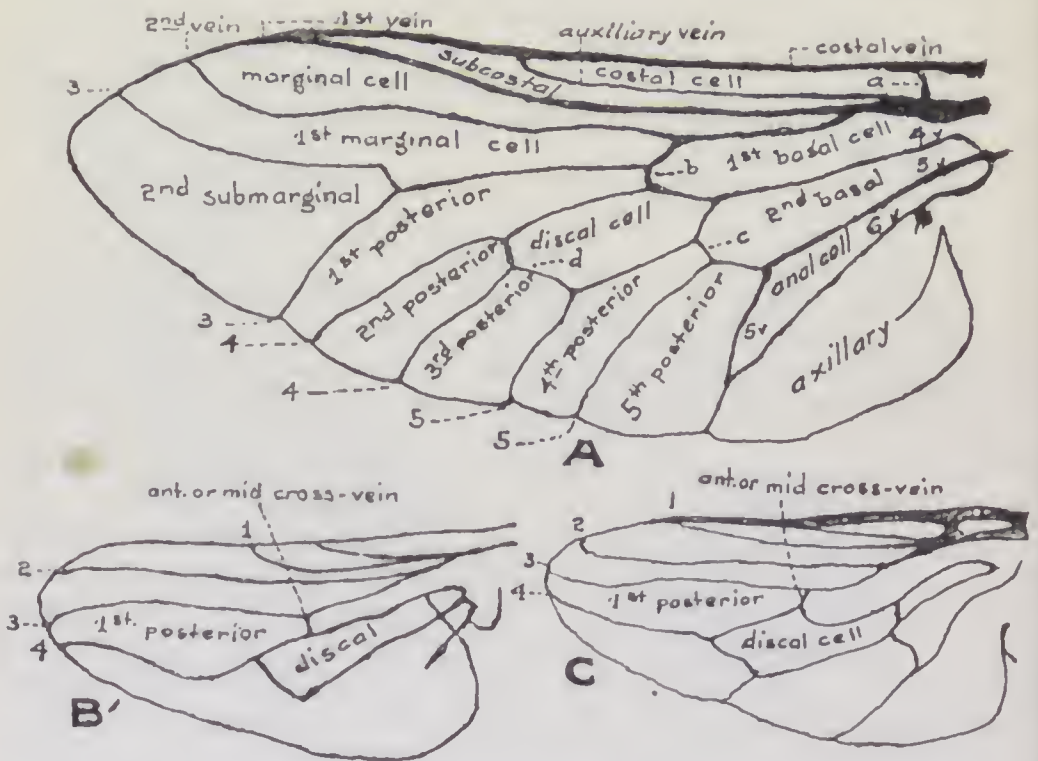 2nd vein
1st vein
auxiliary vein
costal vein
3
marginal cell
subcostal
costal cell
a
1st marginal cell
b
1st basal cell
4 v
5 v
2nd submarginal
1st posterior
discal cell
c
2nd basal
6 v
d
anal cell
5 v
2nd posterior
3rd posterior
4th posterior
5th posterior
axillary
3
4
4
5
5
A
ant. or mid cross-vein
1
2
3
4
1st. posterior
discal
B'
ant. or mid cross-vein
1
2
3
4
1st posterior
discal cell
C